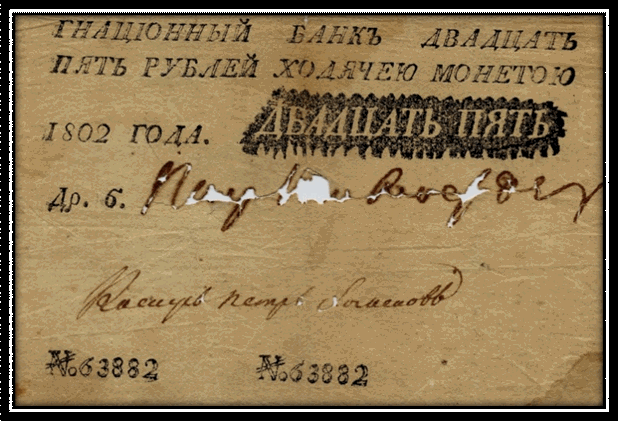 ГНАЦІОННЫЙ БАНКЪ ДВАДЦАТЬ
ПЯТЬ РУБЛЕЙ ХОДЯЧЕЮ МОНЕТОЮ
1802 ГОДА. ДВАДЦАТЬ ПЯТЬ
Др. б.
Касиръ Петръ
№.63882 №.63882